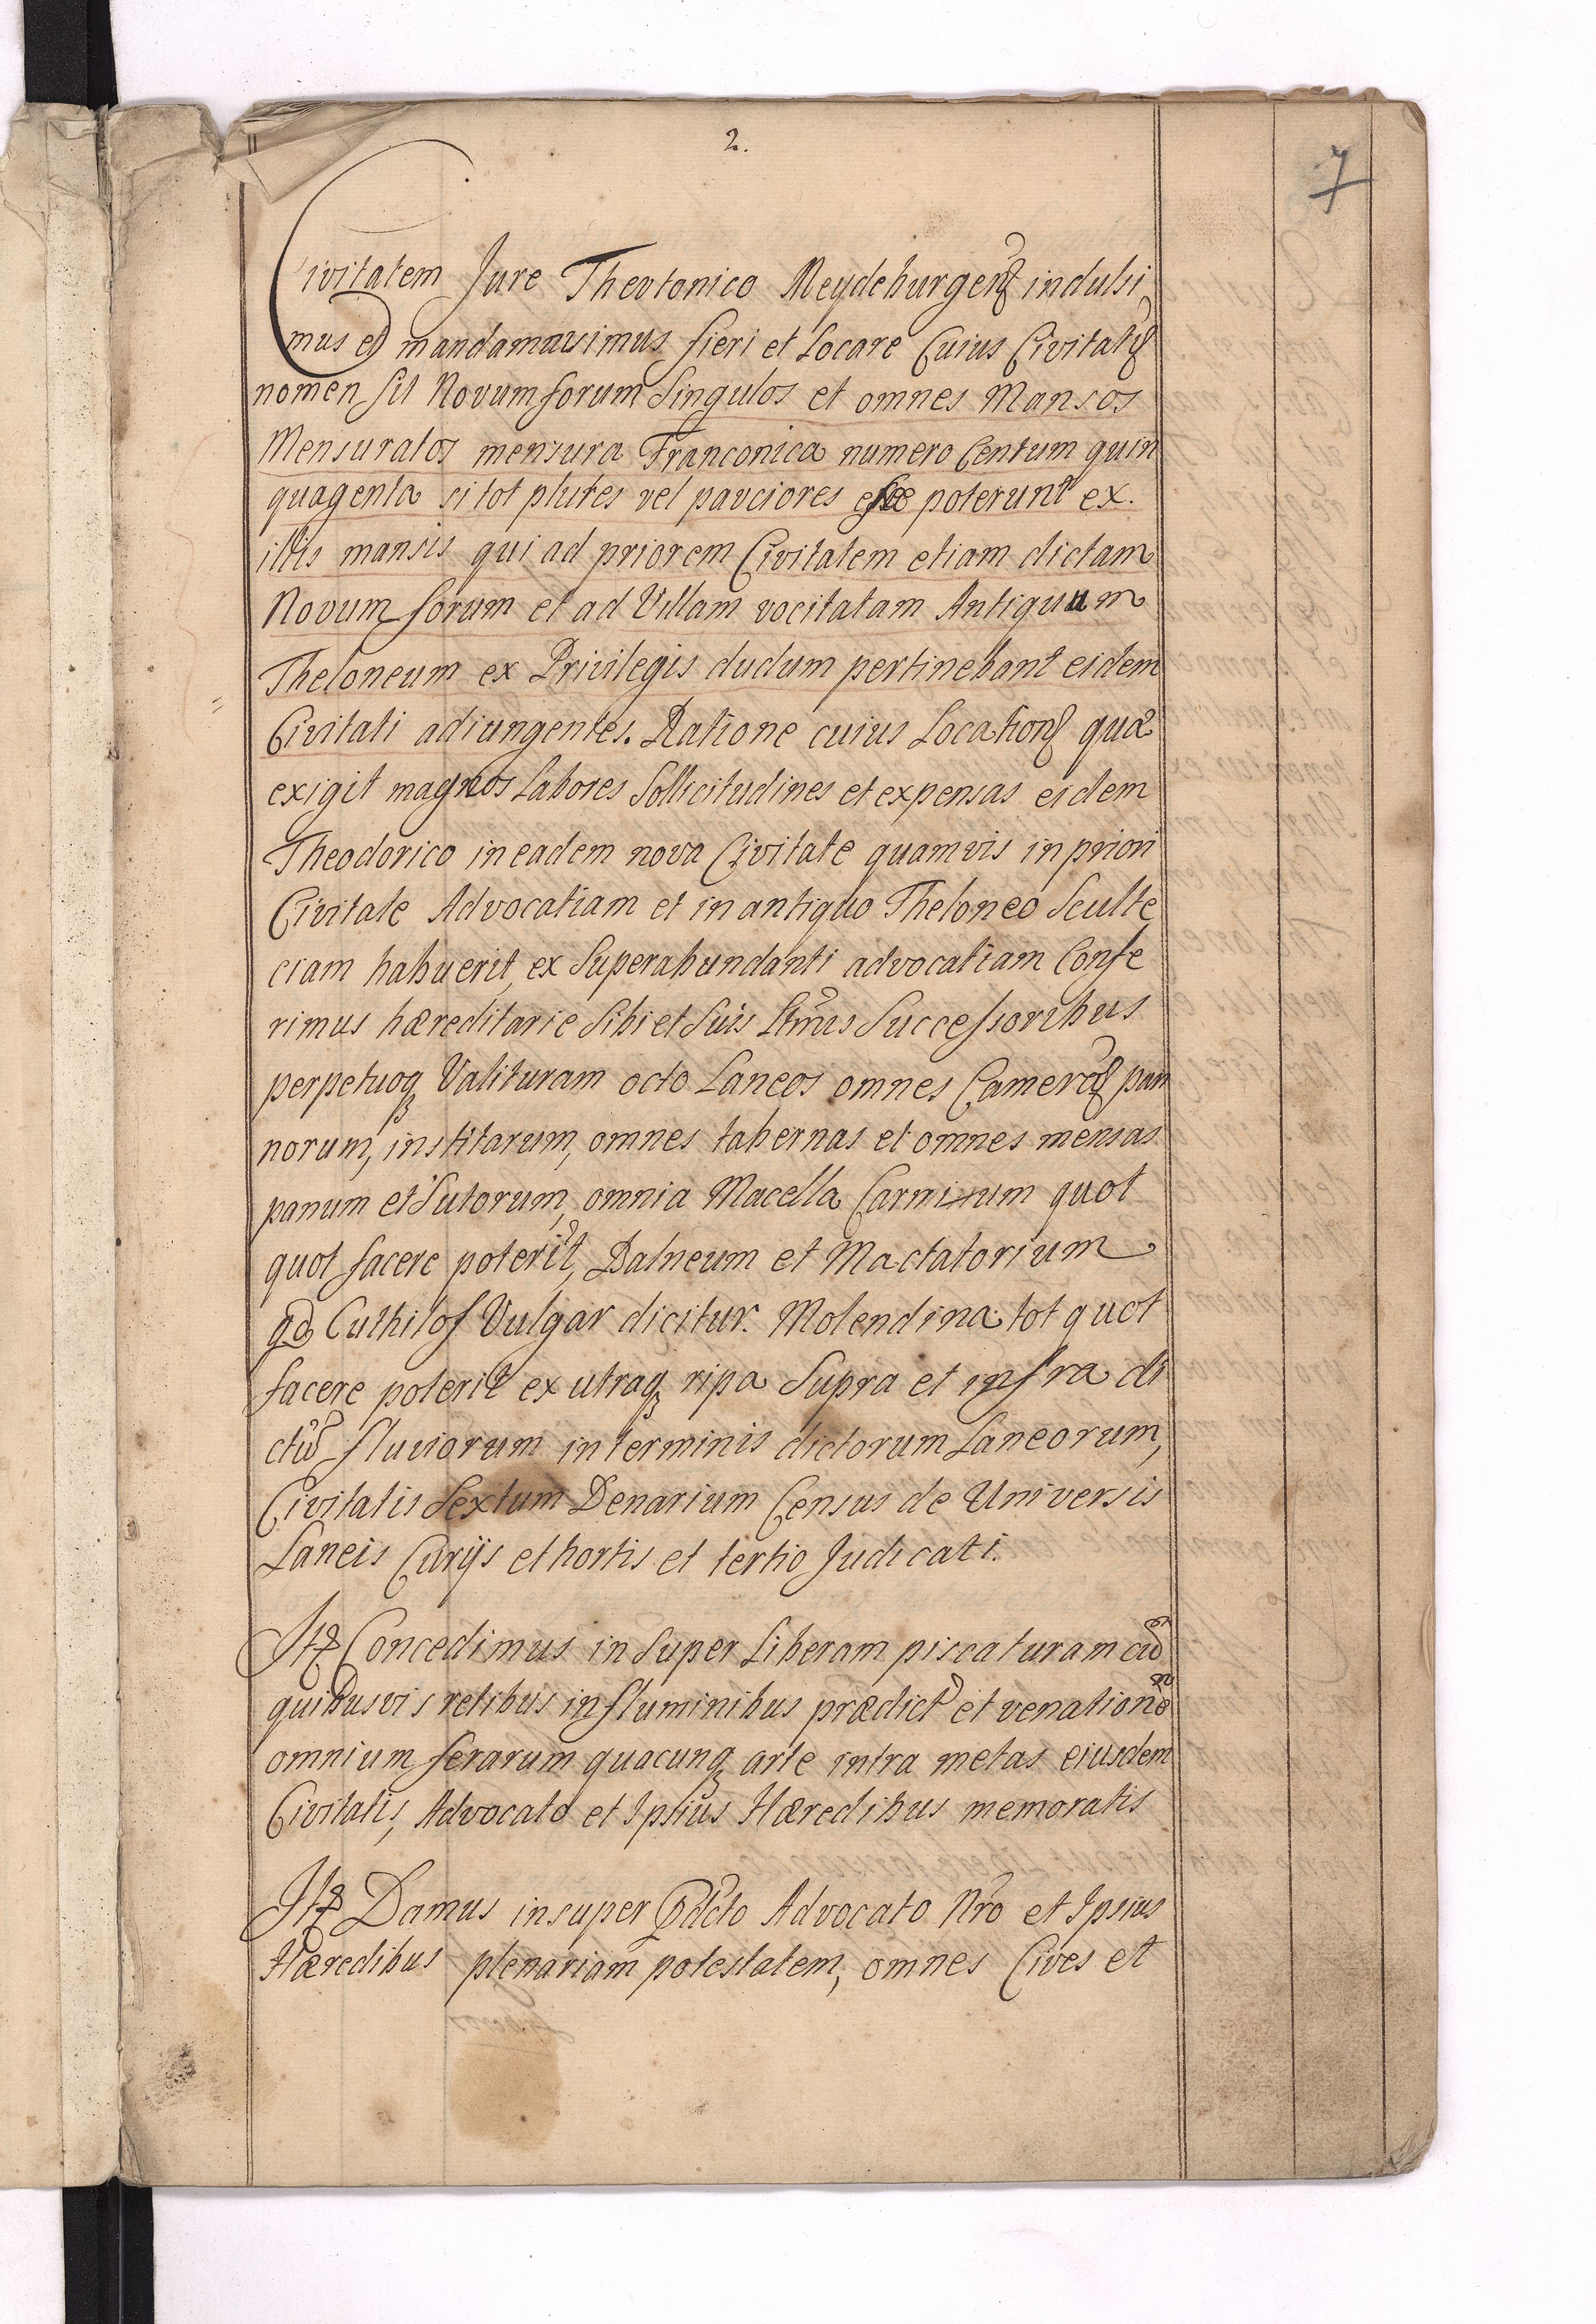 2.
7
Civitatem Jure Theotonico Meydeburgens indulsi
mus et mandamavimus fieri et Locare Cuius Civitatis
nomen sit Novumforum Singulos et omnes Mansos
Mensuratos mensura Franconica numero Centum quin
quagenta si tot plures vel pauciores esse poterunt ex.
illis mansis qui ad priorem Civitatem etiam dictam
Novum forum et ad Villam vocitatam Antiquum
Theloneum ex Privilegis dudum pertinebant eidem
Civitati adiungentes. Ratione cuius Locationis quæ
exigit magnos Labores Sollicitudines et expensas eidem
Theodorico in eadem nova Civitate quamvis in priori
Civitate Advocatiam et in antiquo Theloneo Sculte
ciam habuerit, ex Superabundanti advocatiam Confe
rimus hæreditarie Sibi et Suis Ltmis Successoribus
perpetuoq Valituram octo Laneos omnes Cameras pan
norum, institarum, omnes tabernas et omnes mensas
panum et Sutorum, omnia Macella Carnium quot
quot facere poterit, Balneum et Mactatorium
qd Cuthilof Vulgar dicitur. Molendina tot quot
facere poterit ex utraq ripa Supra et infra di
ctũ fluviorum in terminis dictorum Laneorum,
Civitatis Sextum Denarium Census de Universis
Laneis Curijs et hortis et tertio Judicati.
Itẽ Concedimus in Super Liberam piscaturam cũ
quibusvis retibus in fluminibus prædict et venationẽ
omnium ferarum quacunq arte intra metas eiusdem
Civitatis, Advocato et Ipsius Hæredibus memoratis
Itẽ Damus insuper Pdcto Advocato Nro et Ipsius
Hæredibus plenariam potestatem, omnes Cives et